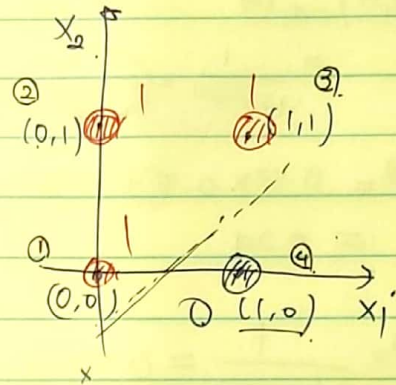 X2
② 1 1 ③
(0,1) (1,1)
① 1 ④
(0,0) 0 (1,0) X1
x